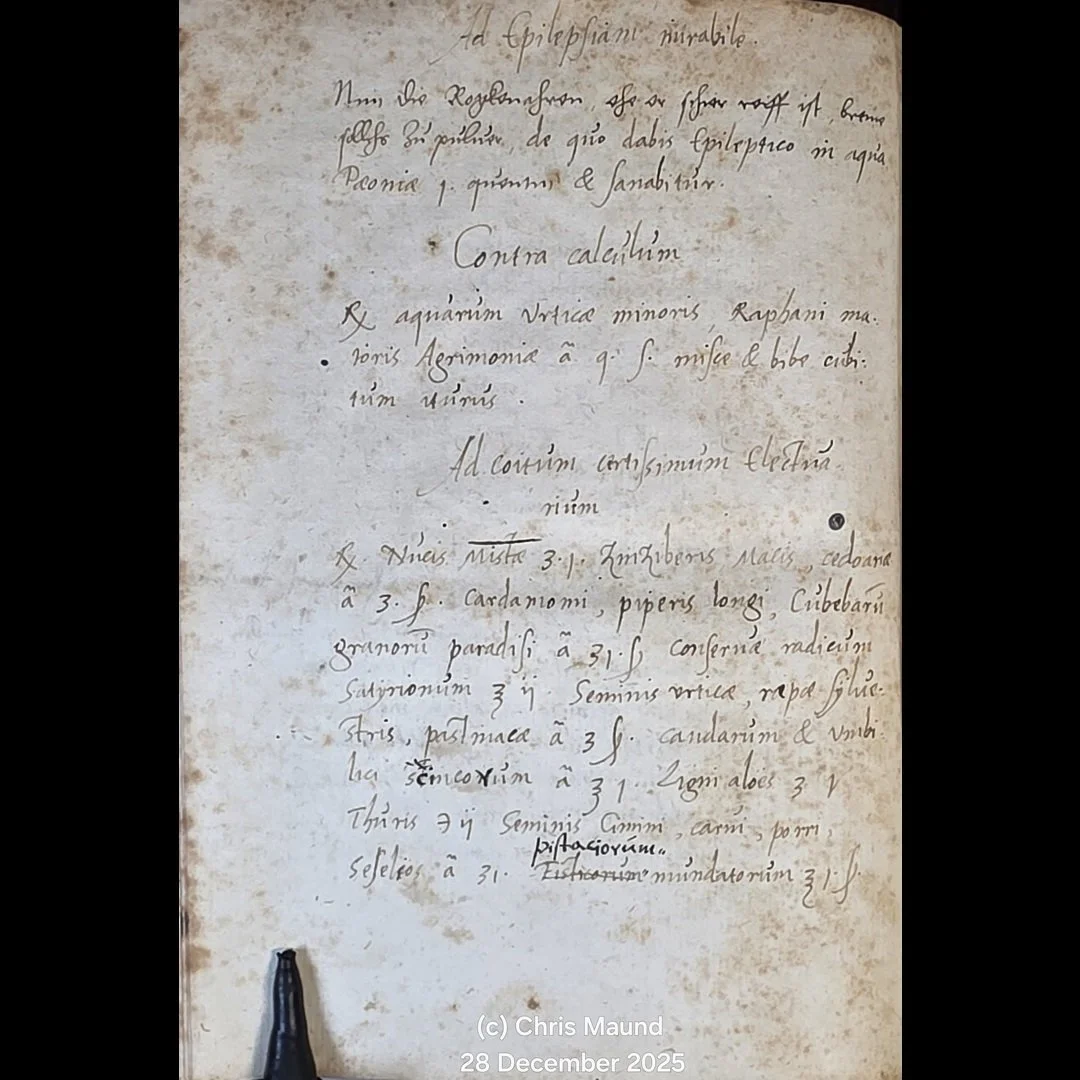 Ad Epilepsiam mirabile.
Nim die Rogkenahren, ehe er schier reiff ist, brenne
sollchs zu puluer, de quo dabis Epileptico in aqua
Pæoniæ 1. quentin & sanabitur.
Contra calculum
℞ aquarum Vrticæ minoris, Raphani ma-
ioris Agrimoniæ ā q. s. misce & bibe cubi-
tum iturus.
Ad coitum certissimum Electua-
rium
℞ Nucis Mistæ ʒ.j. Zinziberis Macis, cedoariæ
ā ʒ.ß. Cardamomi, piperis longi, Cubebarū
granorū paradisi ā ʒ1.ß conseruæ radicum
Satyrionum ℥ ij. Seminis vrticæ, rapæ sylue-
stris, pastinacæ ā ʒ ß. caudarum & vmbi-
lici scincorum ā ℥ 1. Ligni aloes ʒ V
Thuris ℈ ij Seminis Cimini, carui, porri,
pistaciorum
Seselios ā ʒ1. Fisticorum mundatorum ℥ 1.ß.
(c) Chris Maund
28 December 2025